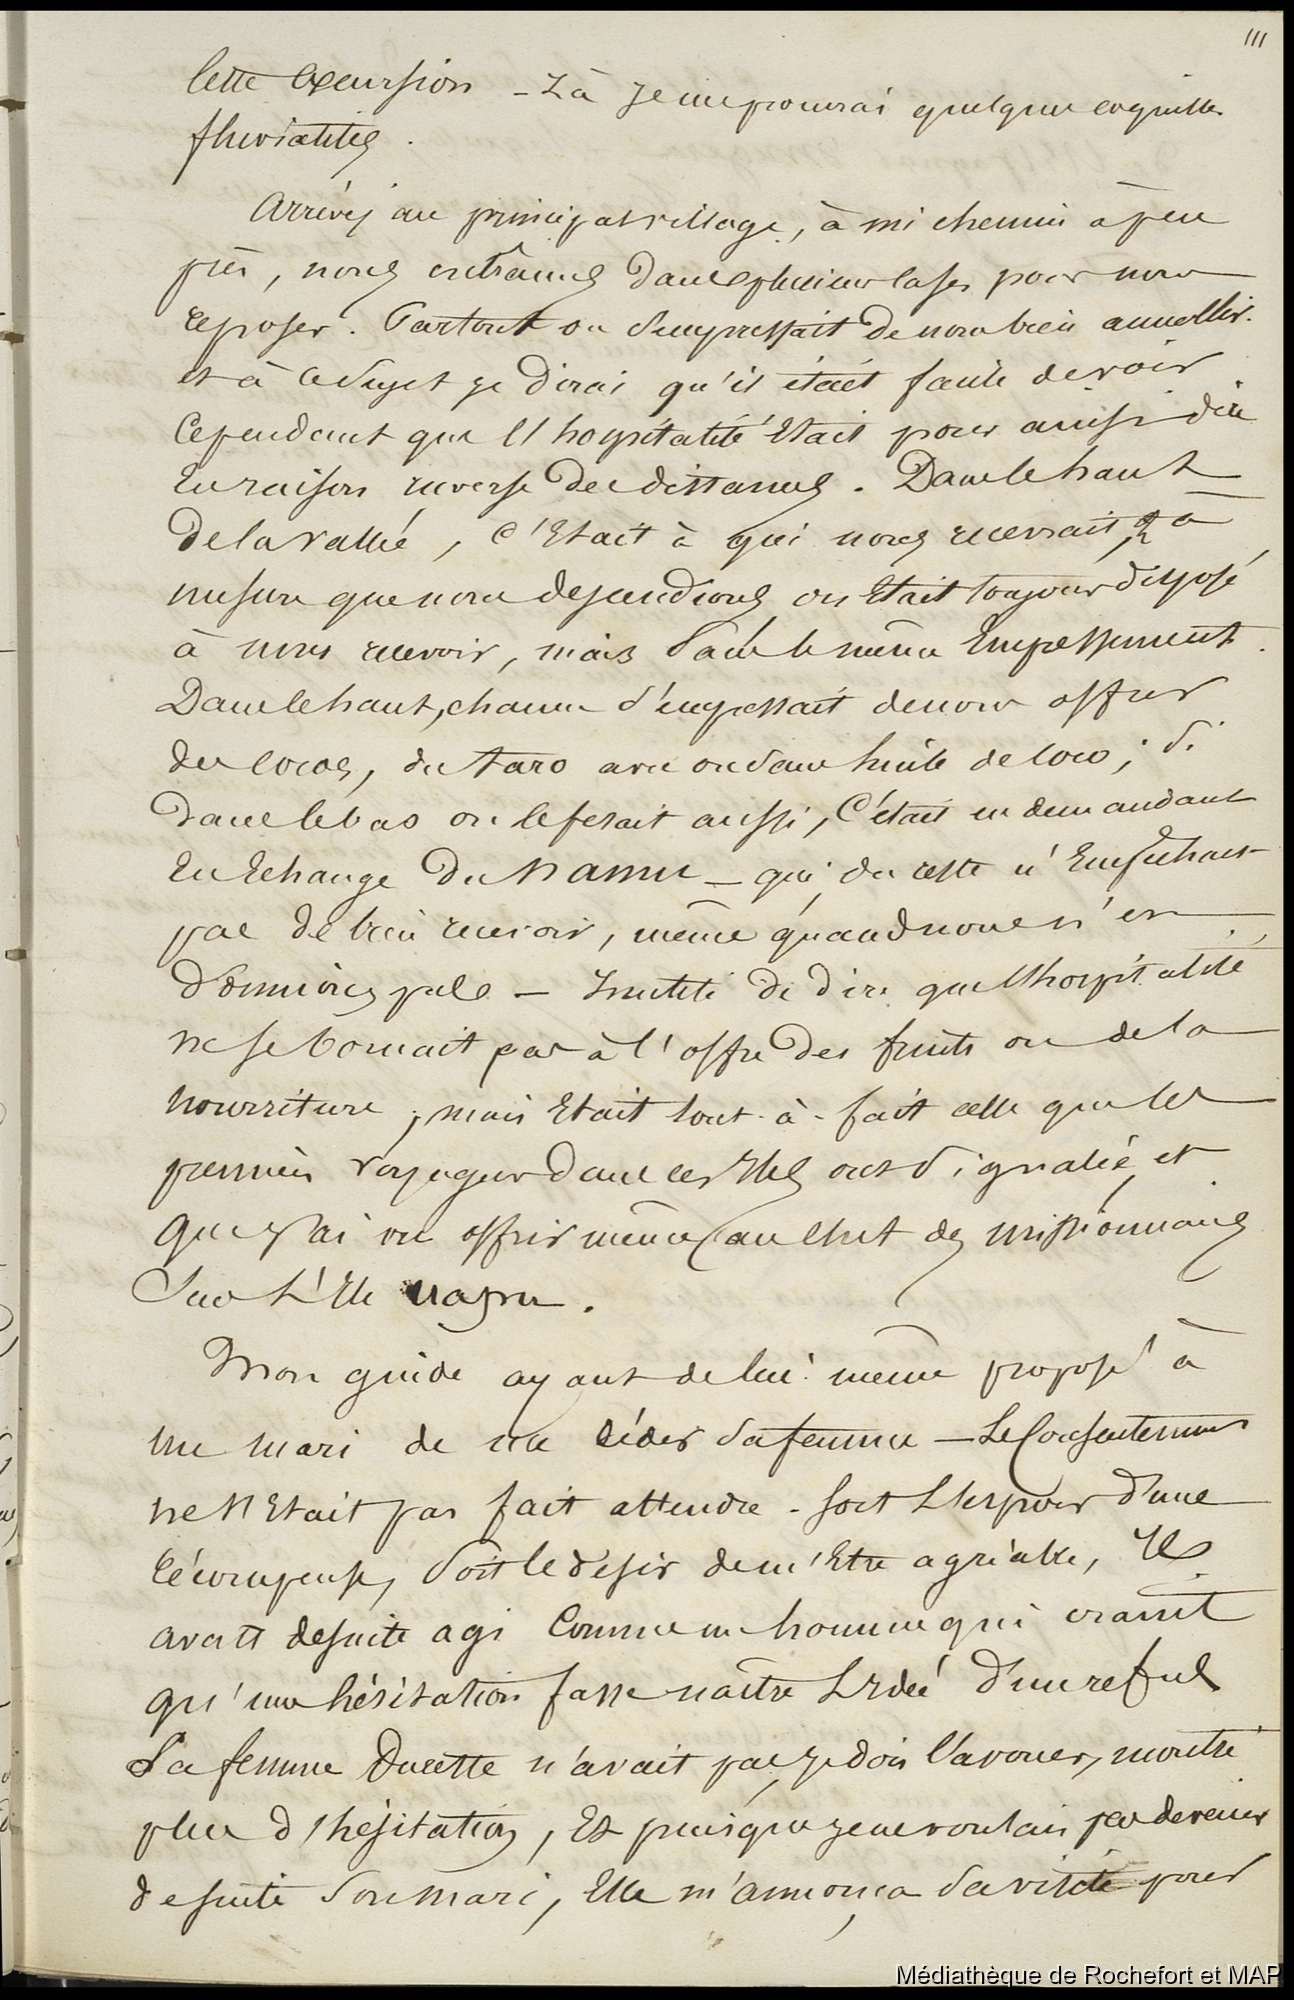 111
Cette Excursion – Là je me procurai quelques coquilles
fluviatiles.
Arrivés au principal village, à mi chemin à peu
près, nous entrâmes dans plusieurs cases pour nous
reposer. Partout on s'empressait de nous bien accueillir.
et à ce sujet je dirai qu'il était facile de voir
Cependant que l'hospitalité Etait pour ainsi dire
En raison inverse des distances. Dans le haut
de la vallée, c'Etait à qui nous recevrait, & à
mesure que nous descendions on Etait toujours disposé
à nous recevoir, mais sans le même Empressement.
Dans le haut, chacun s'empressait de nous offrir
des cocos, du taro avec ou sans huile de coco; si
dans le bas on le fesait aussi, C'était en demandant
En Echange du Namu – qui, du reste n'Empêchait
pas de bien recevoir, même quand nous n'en
donnions pas – Inutile de dire que l'hospitalité
ne se bornait pas à l'offre des fruits ou de la
nourriture, mais Etait tout-à-fait celle que les
premiers voyageurs dans ces Iles ont signalée, et
que j'ai vu offrir même au chef des missionnaires
Sur L'Ile uapu.
Mon guide ayant de lui même proposé à
un mari de me céder sa femme – Le Consentement
ne s'Etait pas fait attendre. Soit L'Espoir d'une
récompense, Soit le désir de m'Etre agréable, Il
avait de suite agi Comme un homme qui craint
qu'une hésitation fasse naître L'Idée d'un refus
La femme Ducette n'avait pas, je dois l'avouer, montré
plus d'hésitation, Et puisque je ne voulais pas devenir
de suite Son mari, Elle m'annonça Sa visite pour
Médiathèque de Rochefort et MAP